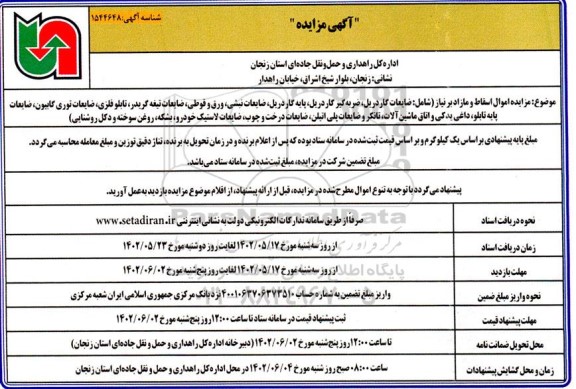 شناسه آگهی: ۱۵۴۴۶۴۸
"آگهی مزایده"
اداره کل راهداری و حمل و نقل جاده‌ای استان زنجان
نشانی: زنجان، بلوار شیخ اشراق، خیابان راهدار
موضوع: مزایده اموال اسقاط و مازاد بر نیاز (شامل: ضایعات گاردریل، ضربه گیر گاردریل، پایه گاردریل، ضایعات نبشی، ورق و قوطی، ضایعات تیغه گریدر، تابلو فلزی، ضایعات توری گابیون، ضایعات
پایه تابلو، داغی یدکی و اتاق ماشین آلات، تانکر و ضایعات پلی اتیلن، ضایعات درخت و چوب، ضایعات لاستیک خودرو، بشکه، روغن سوخته و دکل روشنایی)
مبلغ پایه پیشنهادی بر اساس یک کیلوگرم و بر اساس قیمت ثبت شده در سامانه ستاد بوده که پس از اعلام برنده و در زمان تحویل به برنده، تناژ دقیق توزین و مبلغ معامله محاسبه می گردد.
مبلغ تضمین شرکت در مزایده، مبلغ ثبت شده در سامانه ستاد می باشد.
پیشنهاد می گردد با توجه به تنوع اموال مطرح شده در مزایده، قبل از ارائه پیشنهاد، از اقلام موضوع مزایده بازدید به عمل آورید.
نحوه دریافت اسناد
صرفا از طریق سامانه تدارکات الکترونیکی دولت به نشانی اینترنتی www.setadiran.ir
زمان دریافت اسناد
از روز سه شنبه مورخ ۱۴۰۲/۰۵/۱۷ لغایت روز دوشنبه مورخ ۱۴۰۲/۰۵/۲۳
مهلت بازدید
از روز سه شنبه مورخ ۱۴۰۲/۰۵/۱۷ لغایت روز پنج شنبه مورخ ۱۴۰۲/۰۶/۰۲
نحوه واریز مبلغ ضمین
واریز مبلغ تضمین به شماره حساب ۴۰۰۱۰۶۳۷۰۶۳۷۳۵۱۰ نزد بانک مرکزی جمهوری اسلامی ایران شعبه مرکزی
مهلت پیشنهاد قیمت
ثبت پیشنهاد قیمت در سامانه ستاد تا ساعت ۱۲:۰۰ روز پنج شنبه مورخ ۱۴۰۲/۰۶/۰۲
محل تحویل ضمانت نامه
تا ساعت ۱۲:۰۰ روز پنج شنبه مورخ ۱۴۰۲/۰۶/۰۲ (دبیرخانه اداره کل راهداری و حمل و نقل جاده‌ای استان زنجان)
زمان و محل گشایش پیشنهادات
ساعت ۰۸:۰۰ صبح روز شنبه مورخ ۱۴۰۲/۰۶/۰۴ در محل اداره کل راهداری و حمل و نقل جاده‌ای استان زنجان